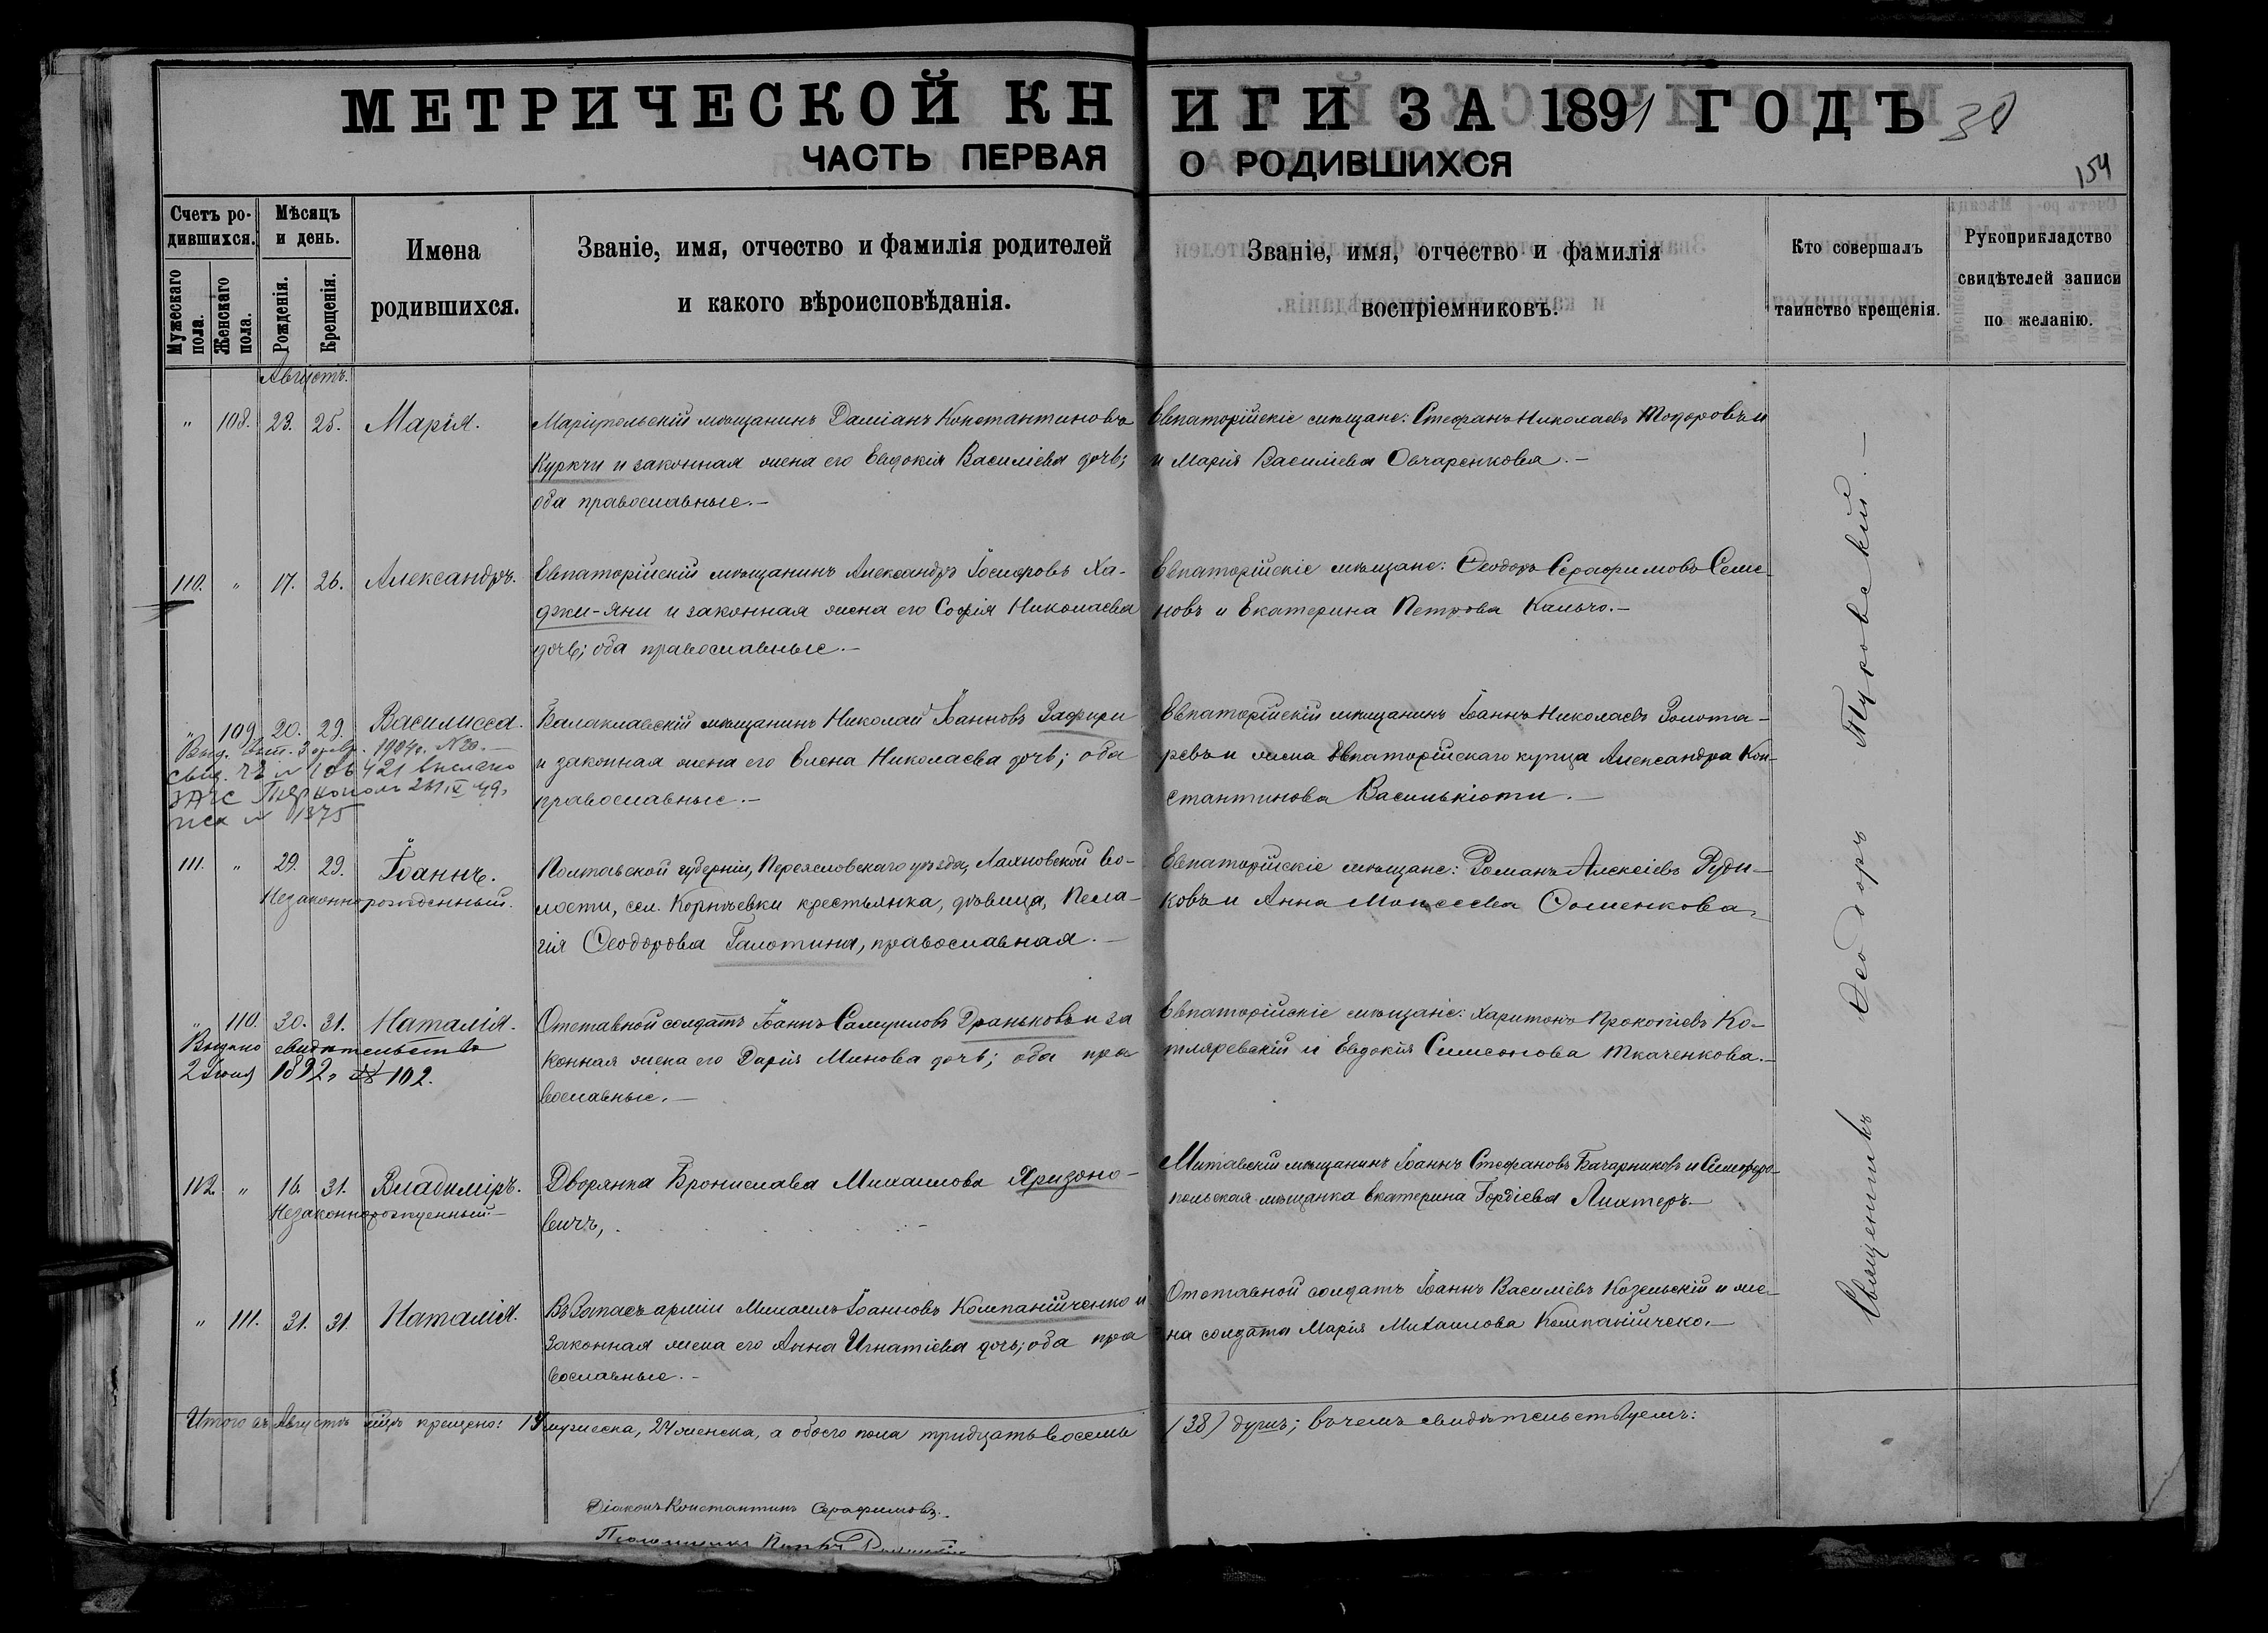 МЕТРИЧЕСКОЙ КНИГИ ЗА 1891 ГОДЪ
154
ЧАСТЬ ПЕРВАЯ О РОДИВШИХСЯ
Счетъ родившихся.
Мужескаго пола.
Женскаго пола.
Мѣсяцъ и день.
Рожденія.
Крещенія.
Имена
родившихся.
Званіе, имя, отчество и фамилія родителей
и какого вѣроисповѣданія.
Званіе, имя, отчество и фамилія
воспріемниковъ.
Кто совершалъ
таинство крещенія.
Рукоприкладство
свидѣтелей записи
по желанію.
Августъ.
" 108. 23. 25. Марія.
Маріупольскій мѣщанинъ Даміанъ Константиновъ
Куркчи и законная жена его Евдокія Василіева дочь;
оба православные.—
Евпаторійскіе мѣщане: Стефанъ Николаевъ Тодоровъ и
и Марія Василіева Овчаренкова.—
110. " 17. 26. Александръ.
Евпаторійскій мѣщанинъ Александръ Іосифовъ Ха-
джи-Яни и законная жена его Софія Николаева
дочь; оба православные.—
Евпаторійскіе мѣщане: Ѳеодоръ Серафимовъ Семе-
новъ и Екатерина Петрова Кальчо.—
" 109. 20. 29. Василисса.
Балаклавскій мѣщанинъ Николай Іоанновъ Зафири
и законная жена его Елена Николаева дочь; оба
православные.—
Евпаторійскій мѣщанинъ Іоаннъ Николаевъ Золота-
ревъ и жена Евпаторійскаго купца Александра Кон-
стантинова Василькіоти.—
1904 г. № 20.—
421 выслано
ЗАГС
1375
111. " 29. 29. Іоаннъ.
Незаконнорожденный.
Полтавской губерніи, Переясловскаго уѣзда, Лихновской во-
лости, сел. Корнѣевки крестьянка, дѣвица, Пела-
гія Ѳеодорова Галотина, православная.—
Евпаторійскіе мѣщане: Романъ Алексіевъ Руди-
ковъ и Анна Моисеева Фоменкова.
" 110. 30. 31. Наталія.
Выдано свидѣтельство
2 Іюня 1892 г. № 102.
Отставной солдатъ Іоаннъ Самуиловъ Драньковъ и за
конная жена его Дарія Минова дочь; оба пра
вославные.—
Евпаторійскіе мѣщане: Харитонъ Прокопіевъ Ко-
тляревскій и Евдокія Симеонова Ткаченкова.—
112. " 16. 31. Владиміръ.
Незаконнорожденный.—
Дворянка Брониславa Михаилова Хризоно-
вичъ,
Митавскій мѣщанинъ Іоаннъ Стефановъ Бачарниковъ и Симферо-
польская мѣщанка Екатерина Гордіева Лихтеръ.—
" 111. 31. 31. Наталія.
Въ Запасъ арміи Михаилъ Іоанновъ Компанійченко и
законная жена его Анна Игнатіева дочь; оба пра
вославные.—
Отставной солдатъ Іоаннъ Василіевъ Козельскій и же-
на солдата Марія Михаилова Компанійчеко.—
Священникъ Ѳеодоръ Туровскій.—
Итого въ Августѣ мѣс. крещено: 14 мужеска, 24 женска, а обоего пола тридцать восемь
(38) душъ; въ чемъ свидѣтельствуемъ:
Діаконъ Константинъ Серафимовъ.